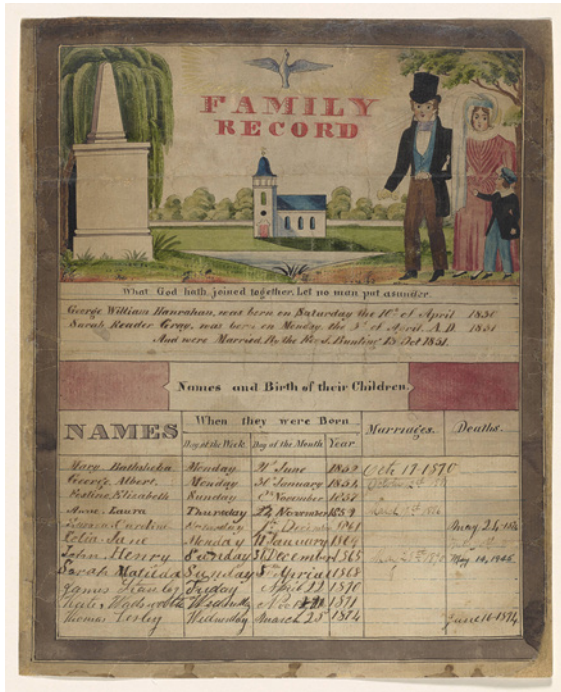 FAMILY
RECORD
What God hath joined together, Let no man put asunder.
George William Hanrahan, was born on Saturday the 10th of April 1830
Sarah Reader Gray, was born on Monday, the of April A.D. 1831
And were Married By the Rev. S. Bunting 13 Oct 1851.
Names and Birth of their Children.
NAMES
When they were Born
Marriages.
Deaths.
Day of the Week
Day of the Month
Year
Mary Bathsheba Monday 21st June 1852 Oct. 19 1870
George Albert. Monday 30 January 1854
Elizabeth Sunday November 1857
Anne Laura Thursday 24 November 1859
Caroline 1861 May 24
Jane Monday January 1864
John Henry Sunday 31 December 1865 May 14,
Sarah Matilda Sunday April 1868
James Friday April 22 1870
1871
Thomas Lesley Wednesday March 25 1874 June 16 1874